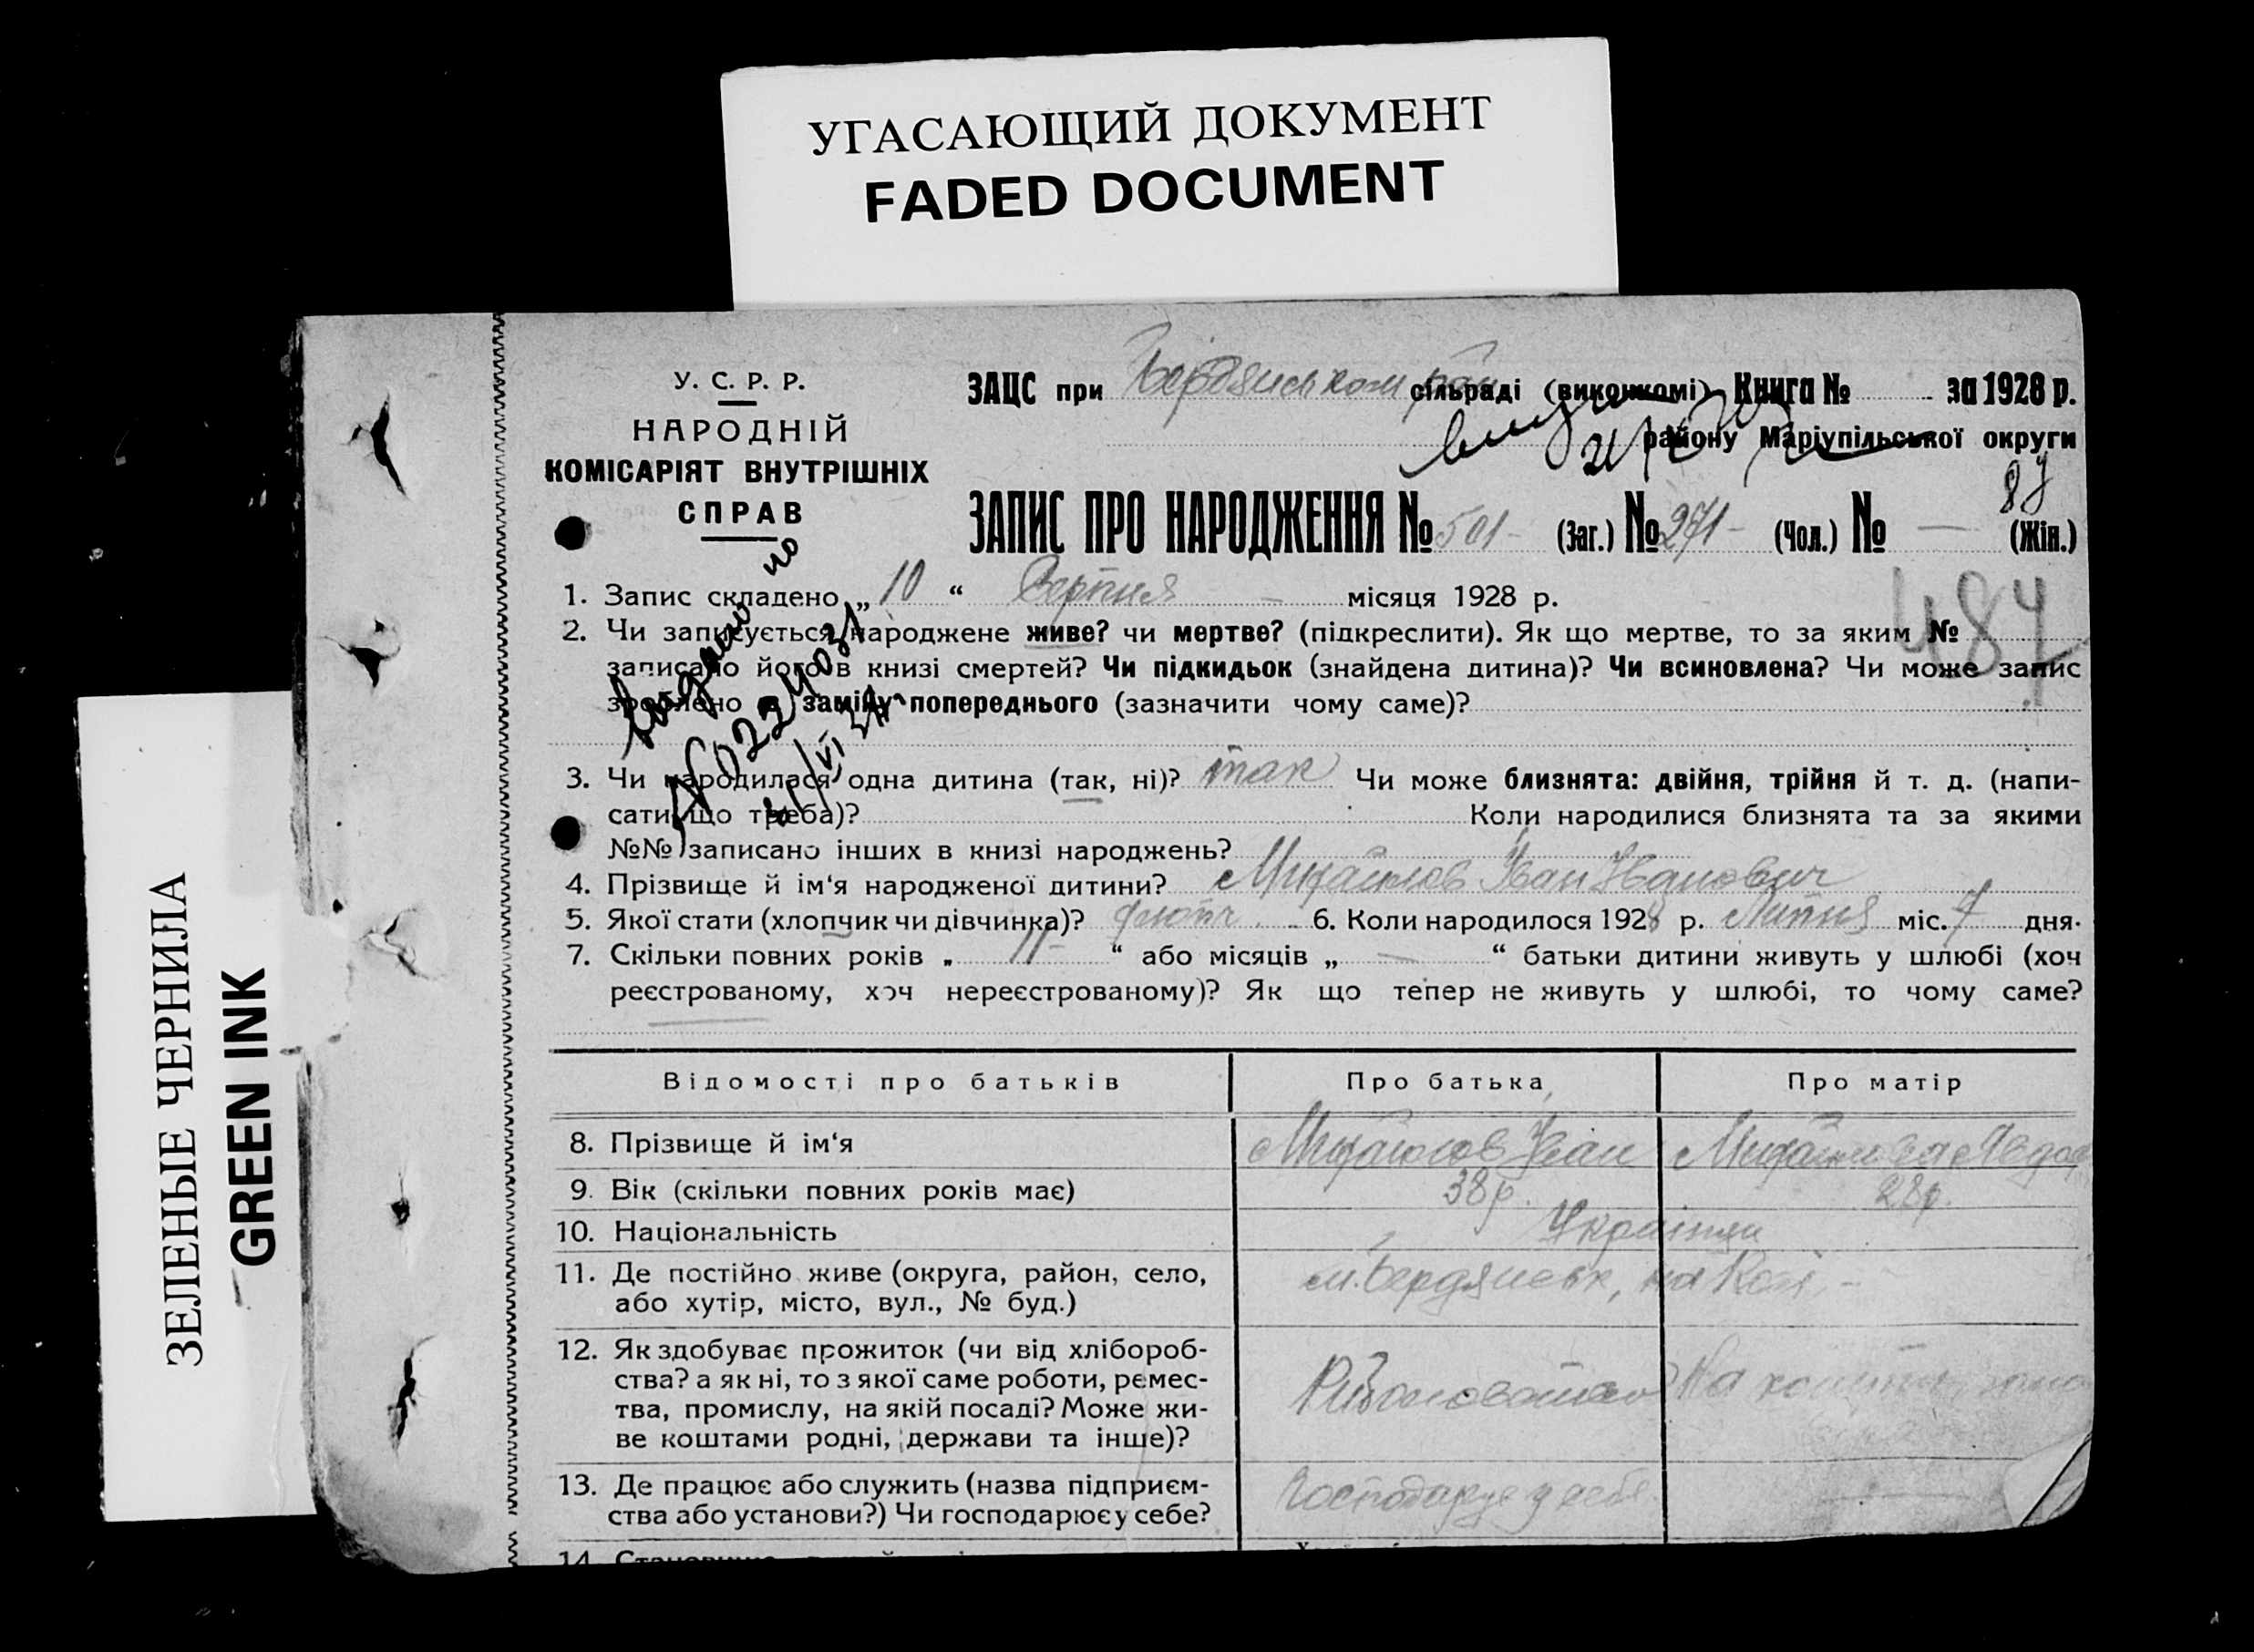 УГАСАЮЩИЙ ДОКУМЕНТ
FADED DOCUMENT
ЗЕЛЕНЫЕ ЧЕРНИЛА
GREEN INK
У. С. Р. Р.
НАРОДНІЙ
КОМІСАРІЯТ ВНУТРІШНІХ
СПРАВ
ЗАЦС при Бердянськом рай сільраді (виконкомі) Книга № за 1928 р.
району Маріупільської округи
87
ЗАПИС ПРО НАРОДЖЕННЯ № 501 - (Заг.) № 271 - (Чол.) № — (Жін.)
487
1. Запис складено „ 10 “ Серпня місяця 1928 р.
2. Чи записується народжене живе? чи мертве? (підкреслити). Як що мертве, то за яким №
записано його в книзі смертей? Чи підкидьок (знайдена дитина)? Чи всиновлена? Чи може запис
зроблено в заміну попереднього (зазначити чому саме)?
3. Чи народилася одна дитина (так, ні)? так Чи може близнята: двійня, трійня й т. д. (напи-
сати що треба)? Коли народилися близнята та за якими
№№ записано інших в книзі народжень?
4. Прізвище й ім‘я народженої дитини? Михайлов Іван Іванович
5. Якої стати (хлопчик чи дівчинка)? 6. Коли народилося 1928 р. Липня міс. 7 дня.
7. Скільки повних років „ 11 - “ або місяців „ — “ батьки дитини живуть у шлюбі (хоч
реєстрованому, хоч нереєстрованому)? Як що тепер не живуть у шлюбі, то чому саме?
Відомості про батьків Про батька Про матір
8. Прізвище й ім‘я Михайлов Іван Михайлова Явдо
9. Вік (скільки повних років має) 38 р. 28 р.
10. Національність Українці
11. Де постійно живе (округа, район, село, м. Бердянськ,
або хутір, місто, вул., № буд.)
12. Як здобуває прожиток (чи від хлібороб-
ства? а як ні, то з якої саме роботи, ремес-
тва, промислу, на якій посаді? Може жи-
ве коштами родні, держави та інше)?
13. Де працює або служить (назва підприєм- Господарує у себе
ства або установи?) Чи господарює у себе?